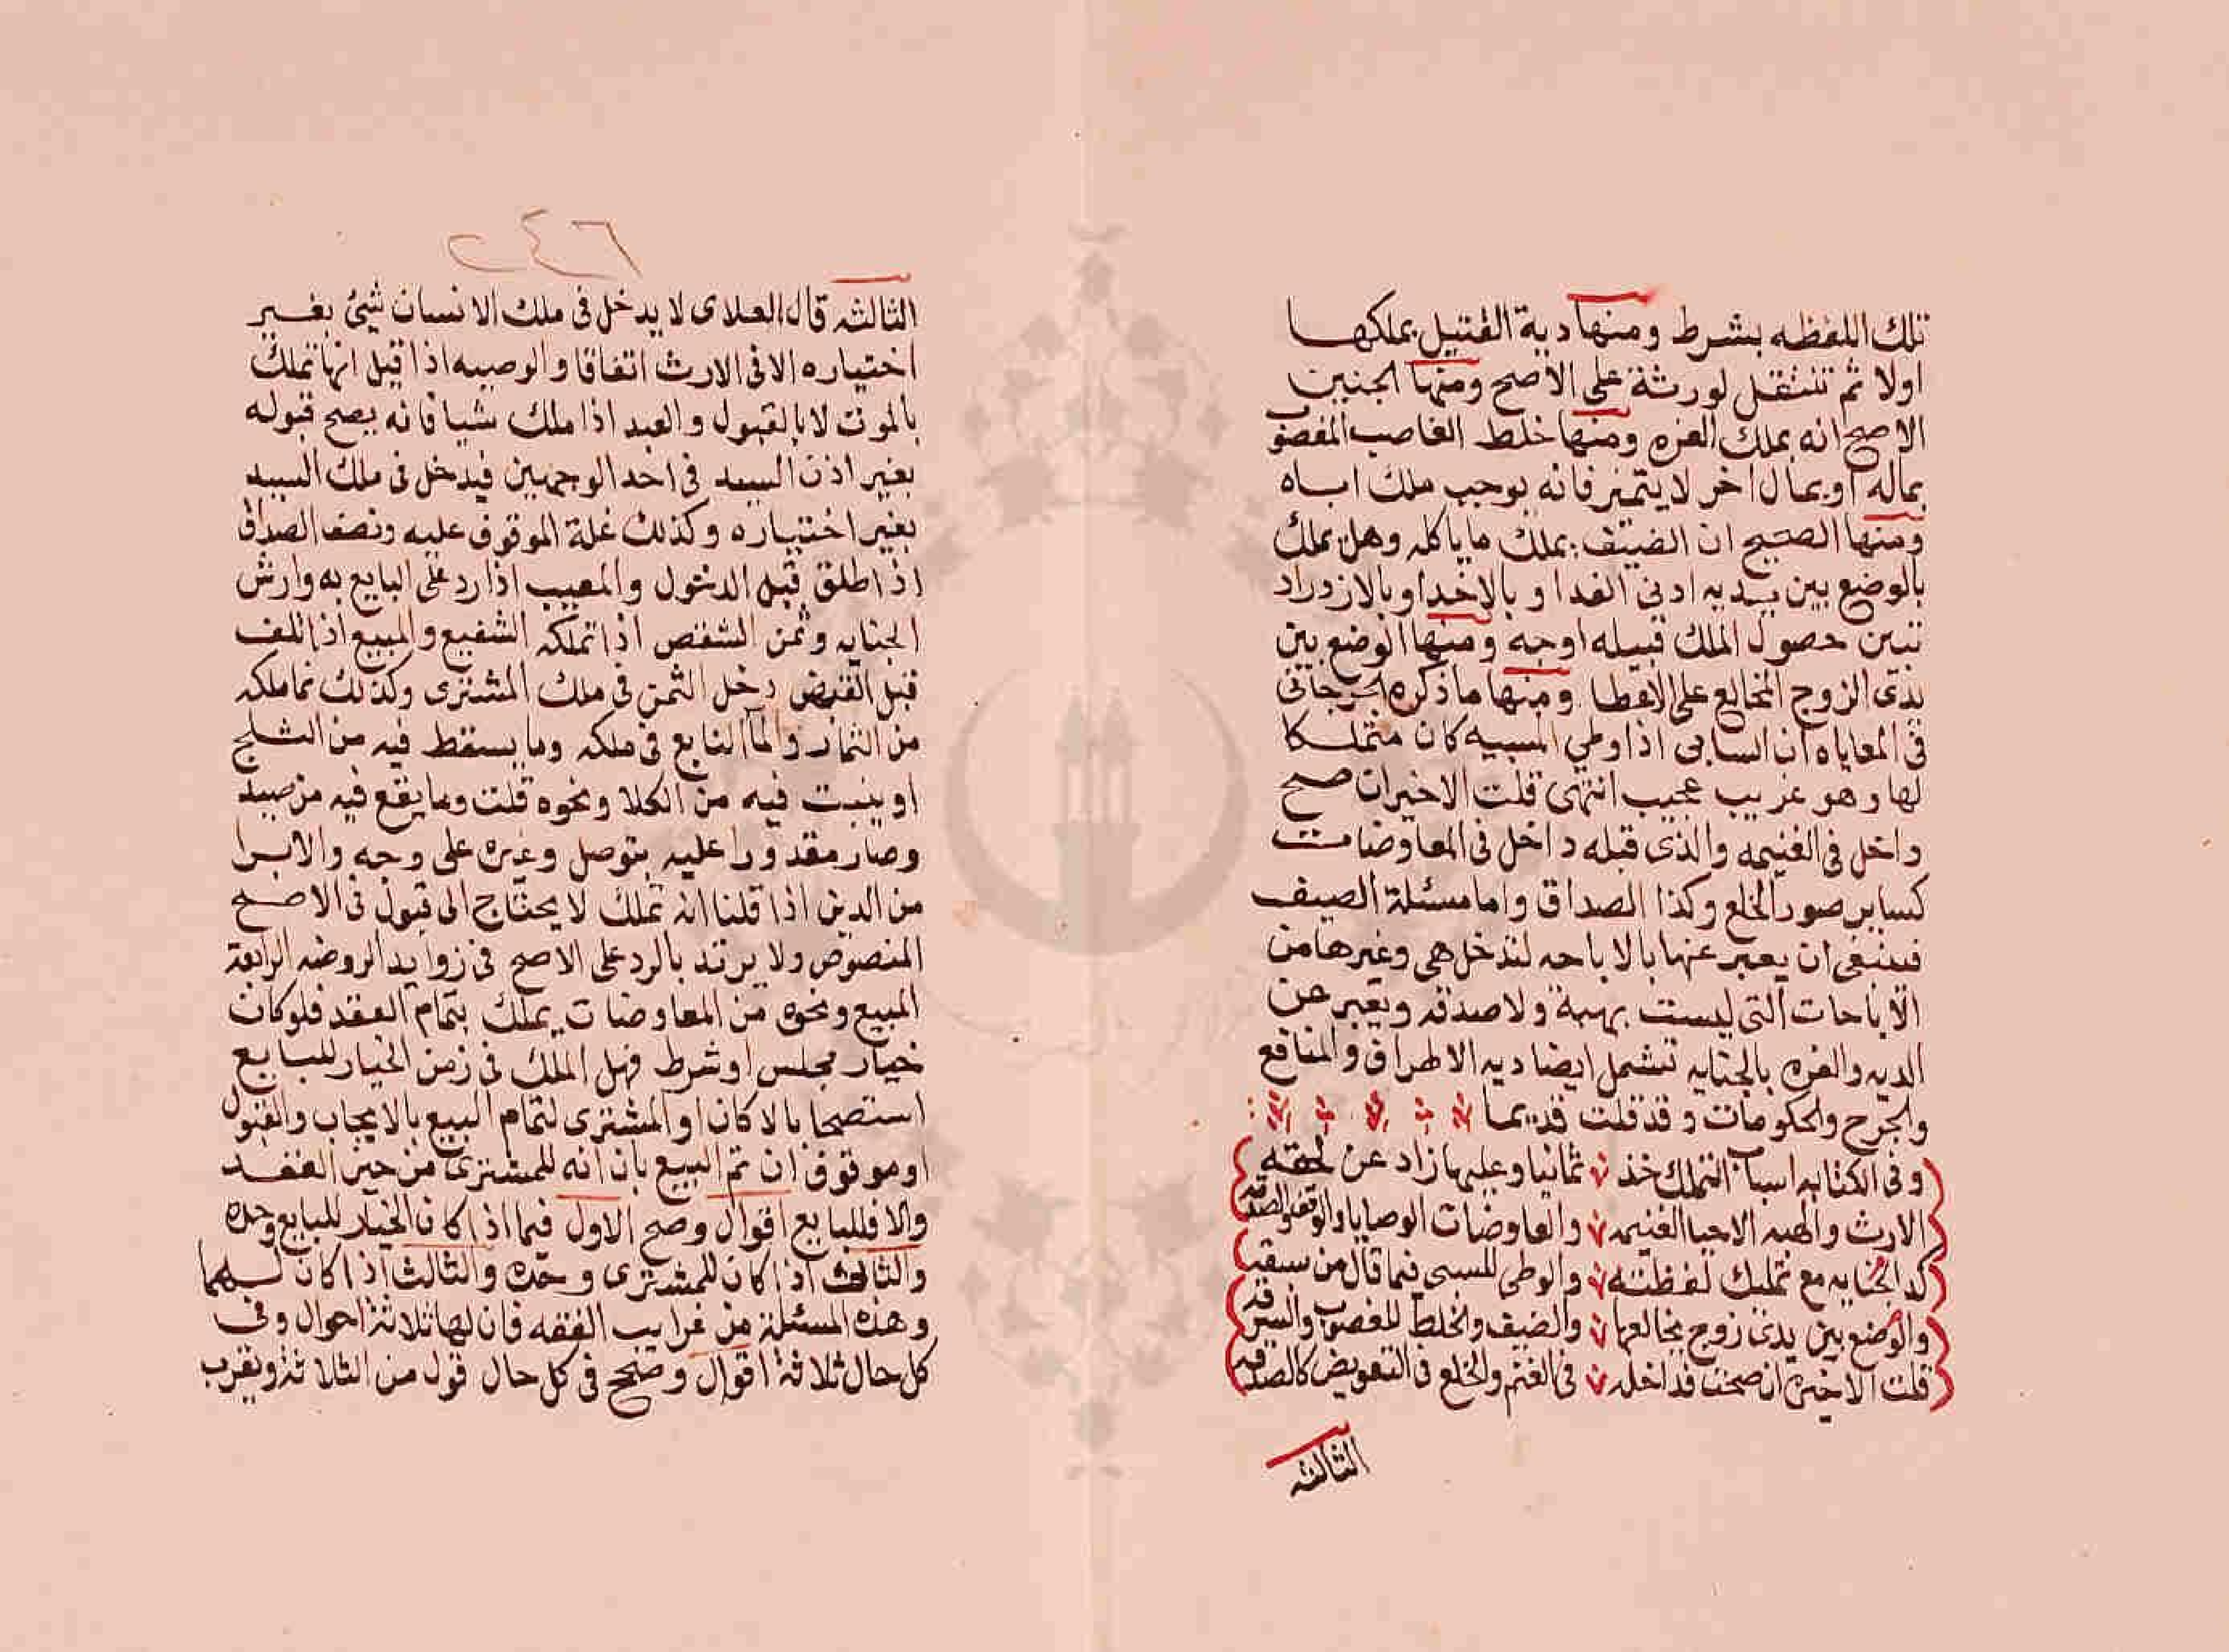 تلك اللفظه بشرط ومنها دية القتيل يملكها
اولا ثم تنتقل لورثة على الاصح ومنها الجنين
الاصح انه يملك الغره ومنها خلط الغاصب المغصوب
بماله او بمال اخر لا يتميز فانه يوجب ملك اباه
ومنها الصحيح ان الضيف يملك ما ياكله وهل يملك
بالوضع بين يديه ادنى الغدا و بالاخذ او بالازدراد
تبين حصول الملك قبيله اوجه ومنها الوضع بين
يدى الزوج المخالع على الاعطا ومنها ما ذكره الجرجانى
فى المعاياه ان السابى اذا وطي المسبيه كان متملكا
لها وهو غريب عجيب انتهى قلت الاخيران صح
داخل فى الغنيمه والذى قبله داخل فى المعاوضات
كساير صور الخلع وكذا الصداق واما مسئلة الضيف
فينبغى ان يعبر عنها بالاباحه لتدخل هى وغيرها من
الاباحات التى ليست بهبة ولا صدقه ويعبر عن
الديه والغره بالجنايه تشمل ايضا ديه الاطراف والمنافع
والجرح والحكومات وقد قلت قديما
وفى الكفايه اسباب التملك خذ ثمانيا وعليها زاد عن لحقه
الارث والهبه الاحيا الغنيمه والمعاوضات الوصايا والوقف والصدقه
كد الجنايه مع تمليك لقطته والوطى للمسبى فيما قال من سبقه
والوضع بين يدى زوج يخالعها والضيف والخلط للمغصوب والسرقه
قلت الاخيرة ان صحت فداخله فى الغنم والخلع فى التعويض كالصدقه
الثالثه
٢٤٦
الثالثه قال العلاى لا يدخل فى ملك الانسان شيئ بغير
اختياره الا فى الارث اتفاقا والوصيه اذا قيل انها تملك
بالموت لا بالقبول والعبد اذا ملك شيا فانه يصح قبوله
بغير اذن السيد فى احد الوجهين فيدخل فى ملك السيد
بغير اختياره وكذلك غلة الموقوف عليه ونصف الصداق
اذا طلق قبل الدخول والمعيب اذا رد على البايع به وارش
الجنايه وثمن الشقص اذا تملكه الشفيع والمبيع اذا تلف
قبل القبض دخل الثمن فى ملك المشترى وكذلك نما ملكه
من الثمار والما النابع فى ملكه وما يسقط فيه من الثلج
او ينبت فيه من الكلا ونحوه قلت وما يقع فيه من صيد
وصار مقدورا عليه بتوصل وغيره على وجه والابرا
من الدين اذا قلنا انه تملك لا يحتاج الى قبول فى الاصح
المنصوص ولا يرتد بالرد على الاصح فى زوايد الروضه الرابعة
المبيع ونحوه من المعاوضات يملك بتمام العقد فلو كان
خيار مجلس او شرط فهل الملك فى زمن الخيار للبايع
استصحابا لا كان او المشترى لتمام البيع بالايجاب والقبول
او موقوف ان تم البيع بان انه للمشترى من حين العقد
والا فللبايع اقوال وصح الاول فيما اذا كان الخيار للبايع وحده
والثالث اذا كان للمشترى وحده والثالث اذا كان لهما
وهذه المسئلة من غرايب الفقه فان لها ثلاثة احوال وفى
كل حال ثلاثة اقوال وصحح فى كل حال قول من الثلاثة ويقرب